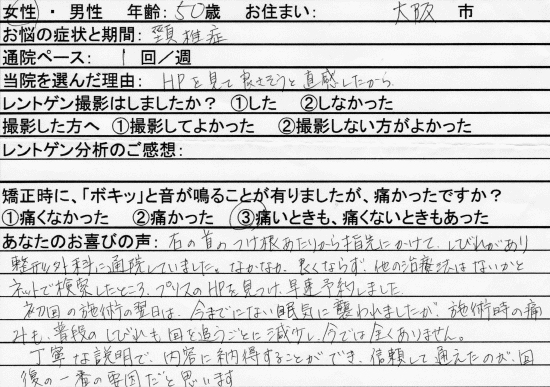 女性 ・ 男性 年齢:50歳 お住まい: 大阪 市
お悩の症状と期間: 頸椎症
通院ペース: 1 回/週
当院を選んだ理由: HPを見て良さそうと直感したから
レントゲン撮影はしましたか? ①した ②しなかった
撮影した方へ ①撮影してよかった ②撮影しない方がよかった
レントゲン分析のご感想:
矯正時に、「ボキッ」と音が鳴ることが有りましたが、痛かったですか?
①痛くなかった ②痛かった ③痛いときも、痛くないときもあった
あなたのお喜びの声: 右の首のつけ根あたりから指先にかけて、しびれがあり
整形外科に通院していました。なかなか良くならず、他の治療法はないかと
ネットで検索したところ、プリスのHPを見つけ、早速予約しました。
初回の施術の翌日は、今までにない眠気に襲われましたが、施術時の痛
みも、普段のしびれも回を追うごとに減少し、今では全くありません。
丁寧な説明で、内容に納得することができ、信頼して通えたのが、回
復の一番の要因だと思います